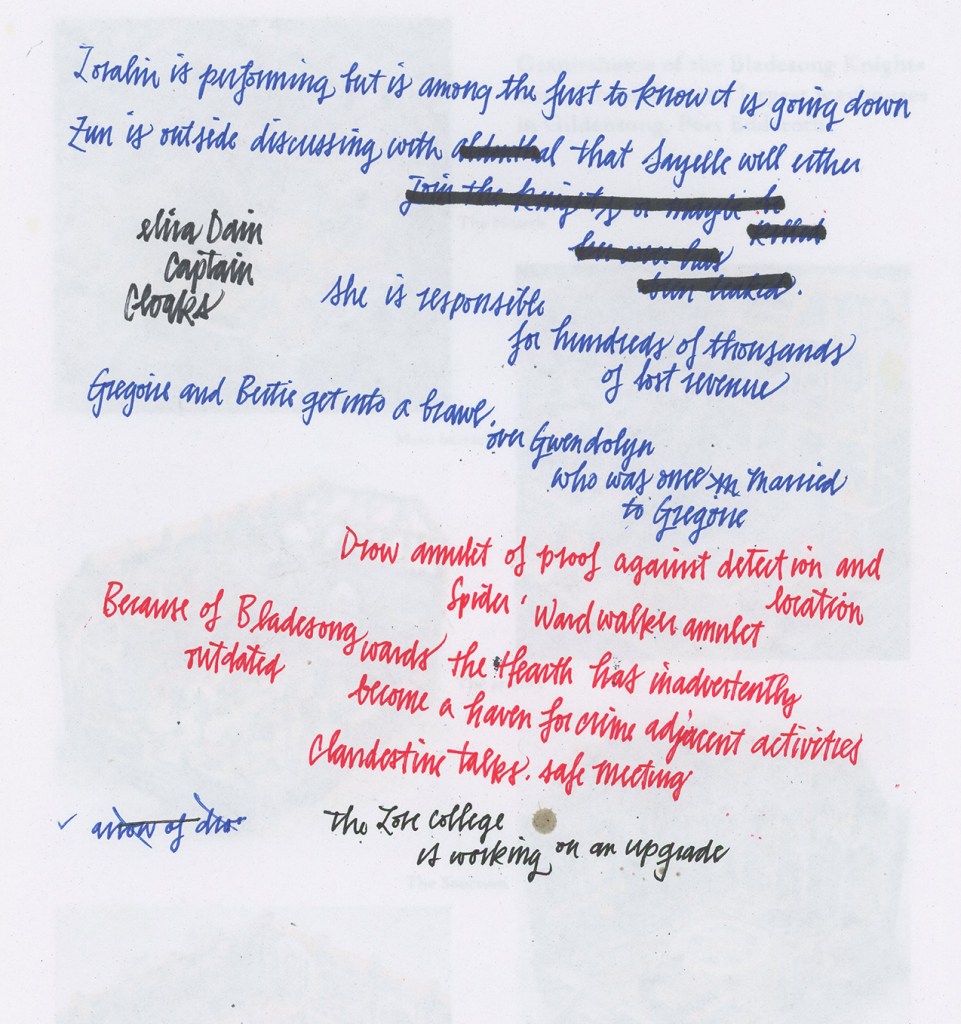 Loralin is performing but is among the first to know it is going down
Zun is outside discussing with al that Sayelle will either
join the knights or maybe be
killed
her cover has
been leaked.
elira Dain
Captain
Cloaks
She is responsible
for hundreds of thousands
of lost revenue
Gregoire and Bertie get into a brawl.
over Gwendolyn
who was once m married
to Gregoire
Drow amulet of proof against detection and
location
Spider' Ward walker amulet
Because of Bladesong wards the Hearth has inadvertently
outdated
become a haven for crime adjacent activities
Clandestine talks. safe meeting
arrow of dro
the Lore college
is working on an upgrade